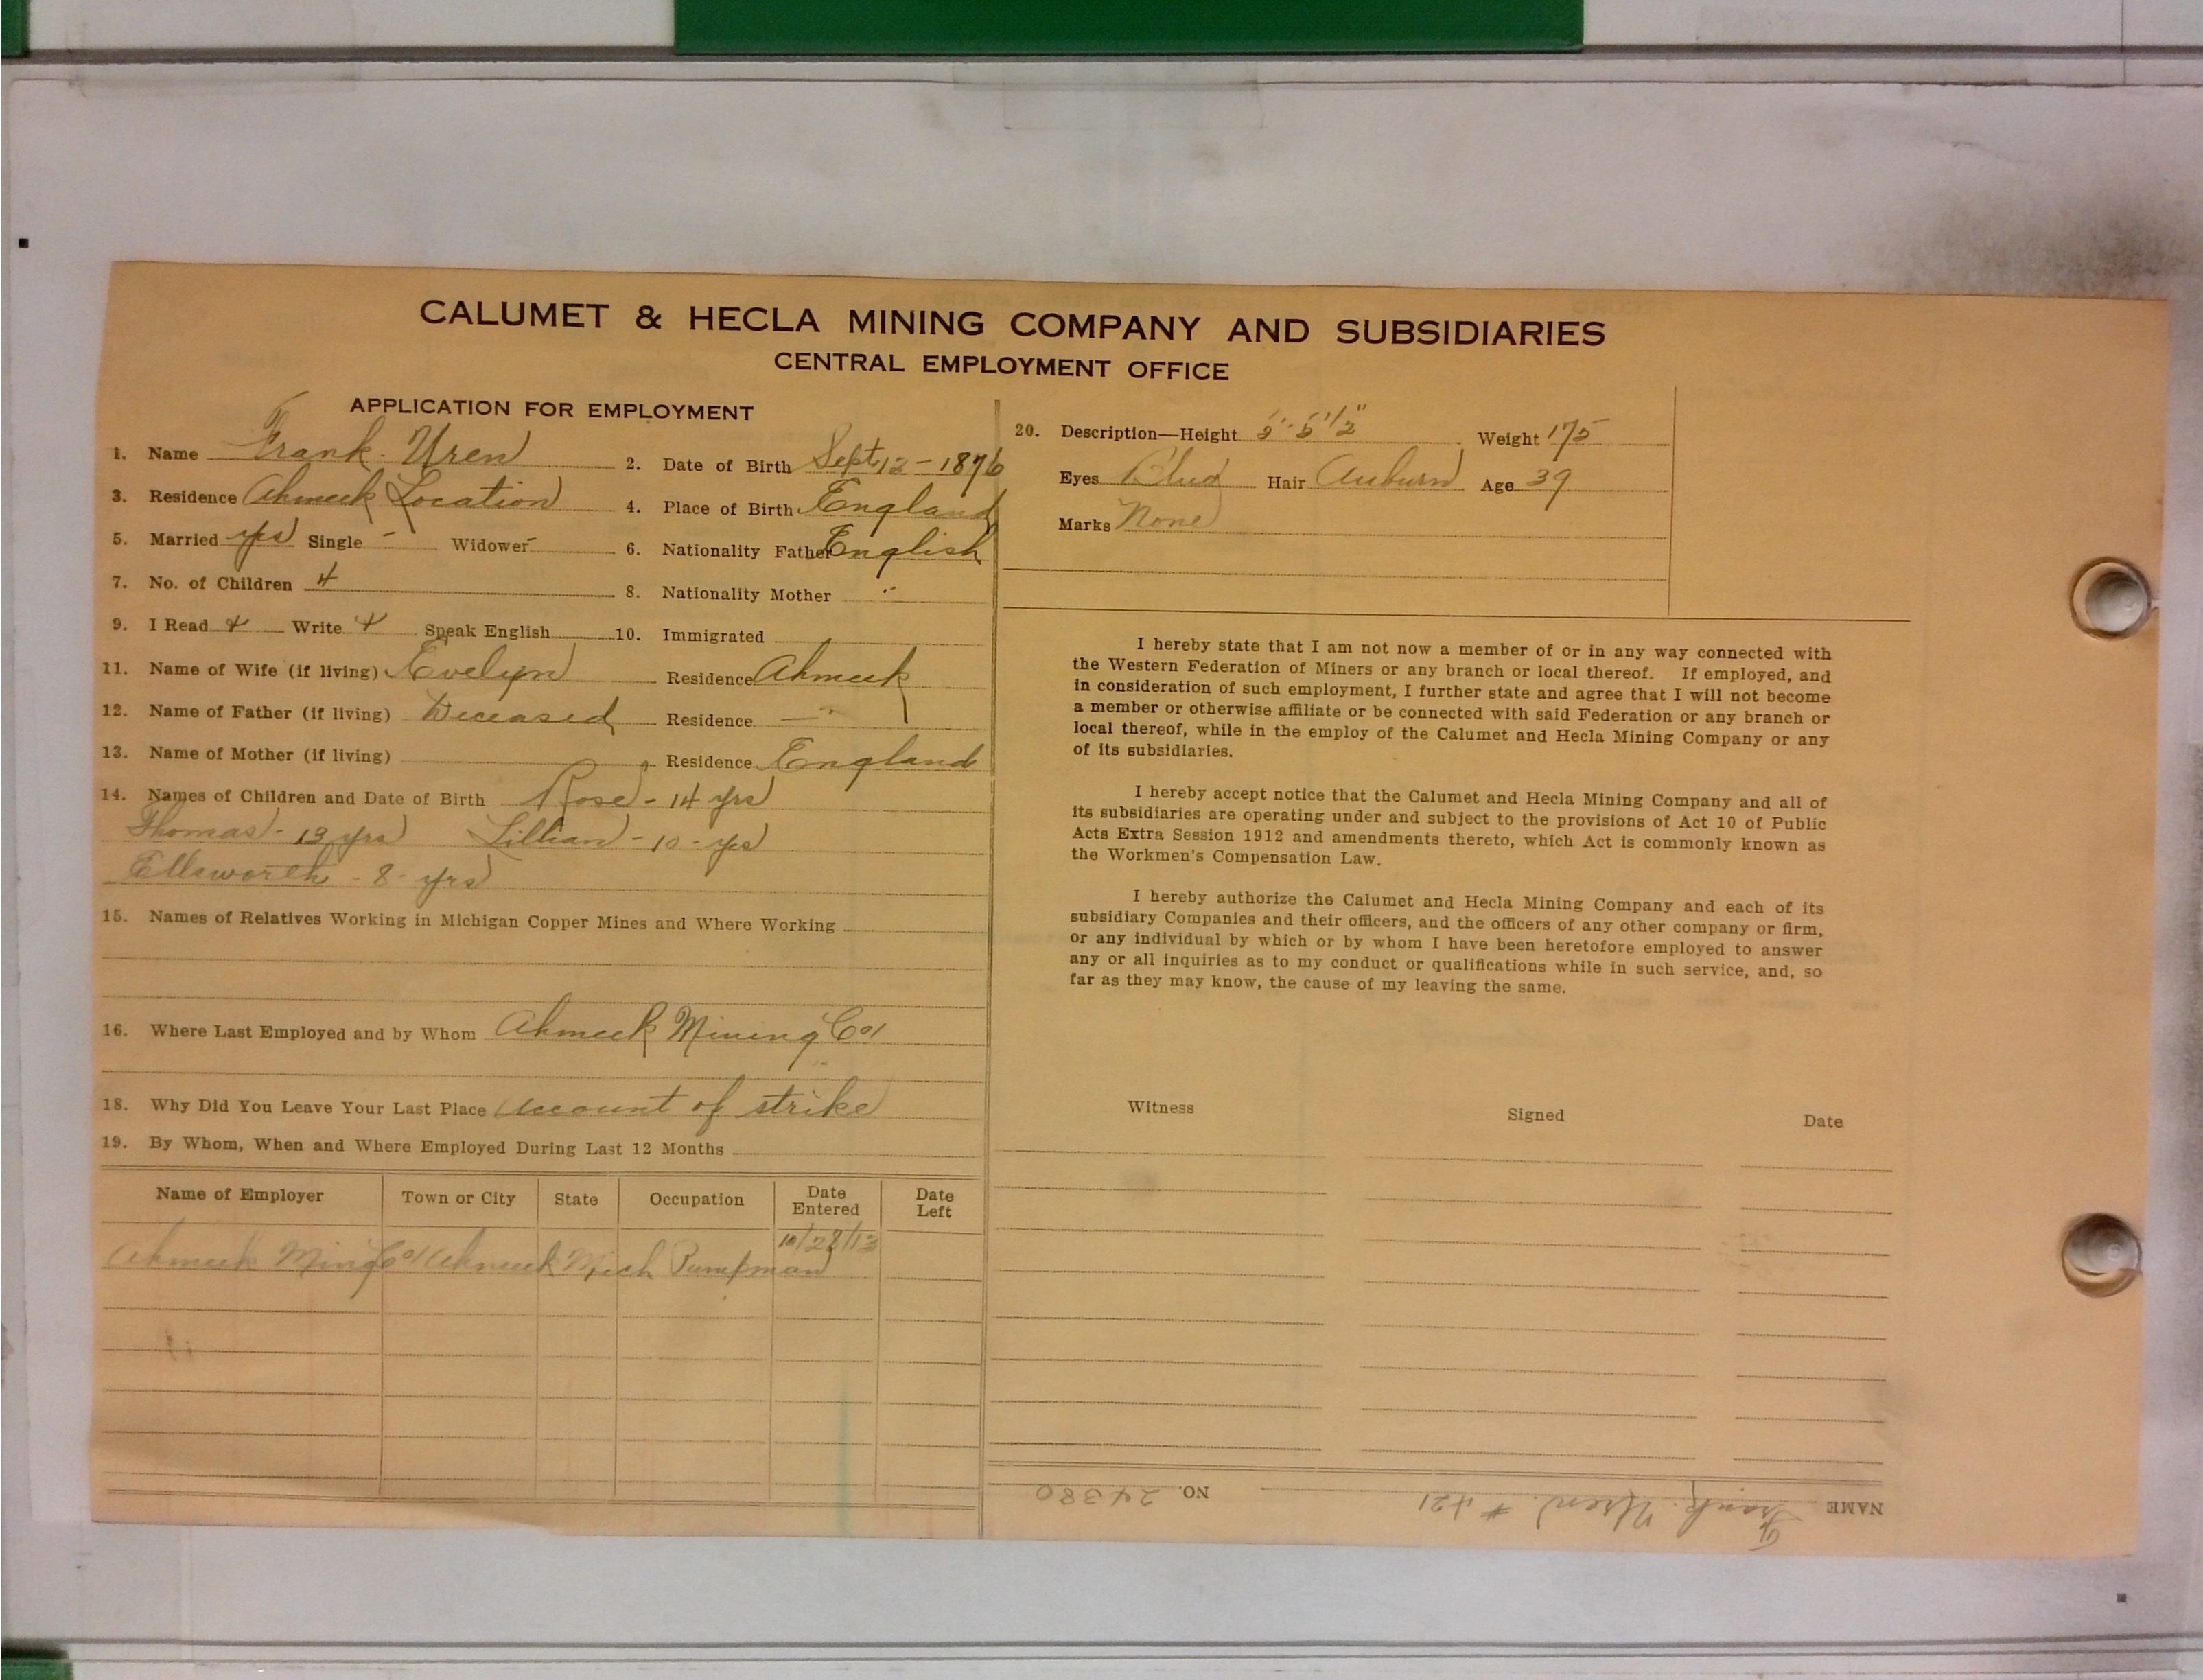 CALUMET & HECLA MINING COMPANY AND SUBSIDIARIES
CENTRAL EMPLOYMENT OFFICE
APPLICATION FOR EMPLOYMENT
1. Name Frank Uren 2. Date of Birth Sept 12 - 1876
3. Residence Ahmeek Location 4. Place of Birth England
5. Married yes Single - Widower - 6. Nationality Father English
7. No. of Children 4 8. Nationality Mother "
9. I Read + Write + Speak English 10. Immigrated
11. Name of Wife (if living) Evelyn Residence Ahmeek
12. Name of Father (if living) Deceased Residence -
13. Name of Mother (if living) Residence England
14. Names of Children and Date of Birth Rose - 14 yrs
Thomas - 13 yrs Lillian - 10 - yrs
Ellsworth - 8 - yrs
15. Names of Relatives Working in Michigan Copper Mines and Where Working
16. Where Last Employed and by Whom Ahmeek Mining Co
18. Why Did You Leave Your Last Place Account of strike
19. By Whom, When and Where Employed During Last 12 Months
Name of Employer Town or City State Occupation Date Entered Date Left
Ahmeek Ming Co Ahmeek Mich Pumpman 10/28/13
20. Description—Height 5' 5 1/2" Weight 175
Eyes Blue Hair Auburn Age 39
Marks None
I hereby state that I am not now a member of or in any way connected with
the Western Federation of Miners or any branch or local thereof. If employed, and
in consideration of such employment, I further state and agree that I will not become
a member or otherwise affiliate or be connected with said Federation or any branch or
local thereof, while in the employ of the Calumet and Hecla Mining Company or any
of its subsidiaries.
I hereby accept notice that the Calumet and Hecla Mining Company and all of
its subsidiaries are operating under and subject to the provisions of Act 10 of Public
Acts Extra Session 1912 and amendments thereto, which Act is commonly known as
the Workmen's Compensation Law.
I hereby authorize the Calumet and Hecla Mining Company and each of its
subsidiary Companies and their officers, and the officers of any other company or firm,
or any individual by which or by whom I have been heretofore employed to answer
any or all inquiries as to my conduct or qualifications while in such service, and, so
far as they may know, the cause of my leaving the same.
Witness Signed Date
NAME Frank Uren # 421 NO. 24380